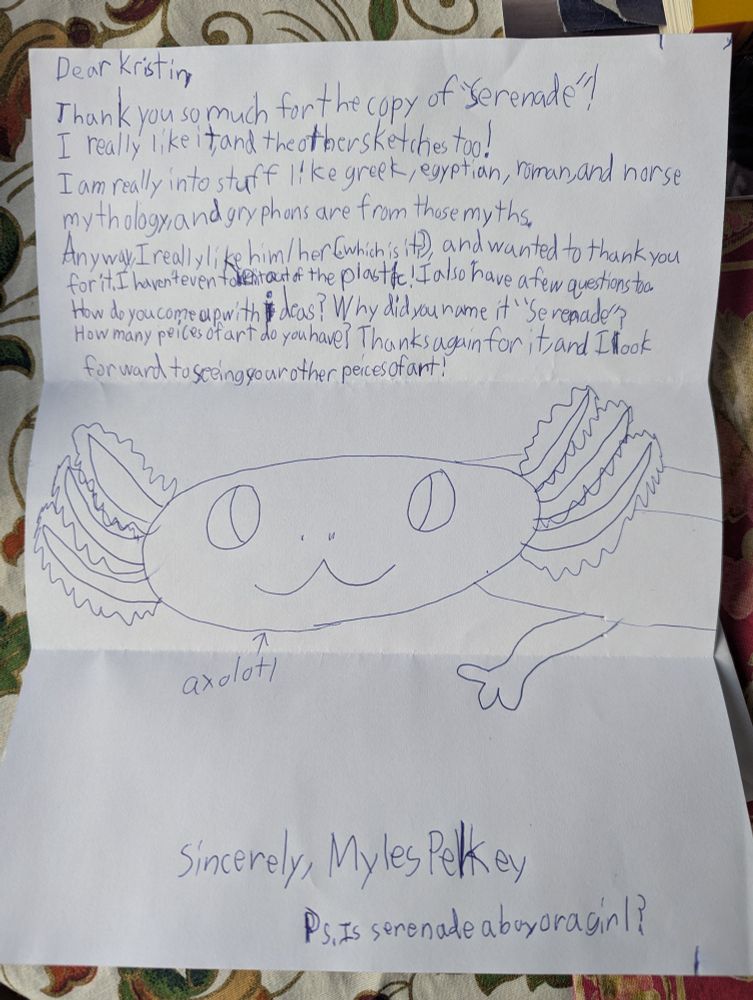 Dear Kristin,
Thank you so much for the copy of "Serenade"!
I really like it, and the other sketches too!
I am really into stuff like greek, egyptian, roman, and norse
mythology, and gryphons are from those myths.
Anyway, I really like him/her (which is it?), and wanted to thank you
for it. I haven't even taken it out of the plastic! I also have a few questions too.
How do you come up with ideas? Why did you name it "Serenade"?
How many peices of art do you have? Thanks again for it, and I look
forward to seeing your other peices of art!
axolotl
Sincerely, Myles Pelkey
Ps. Is serenade a boy or a girl?